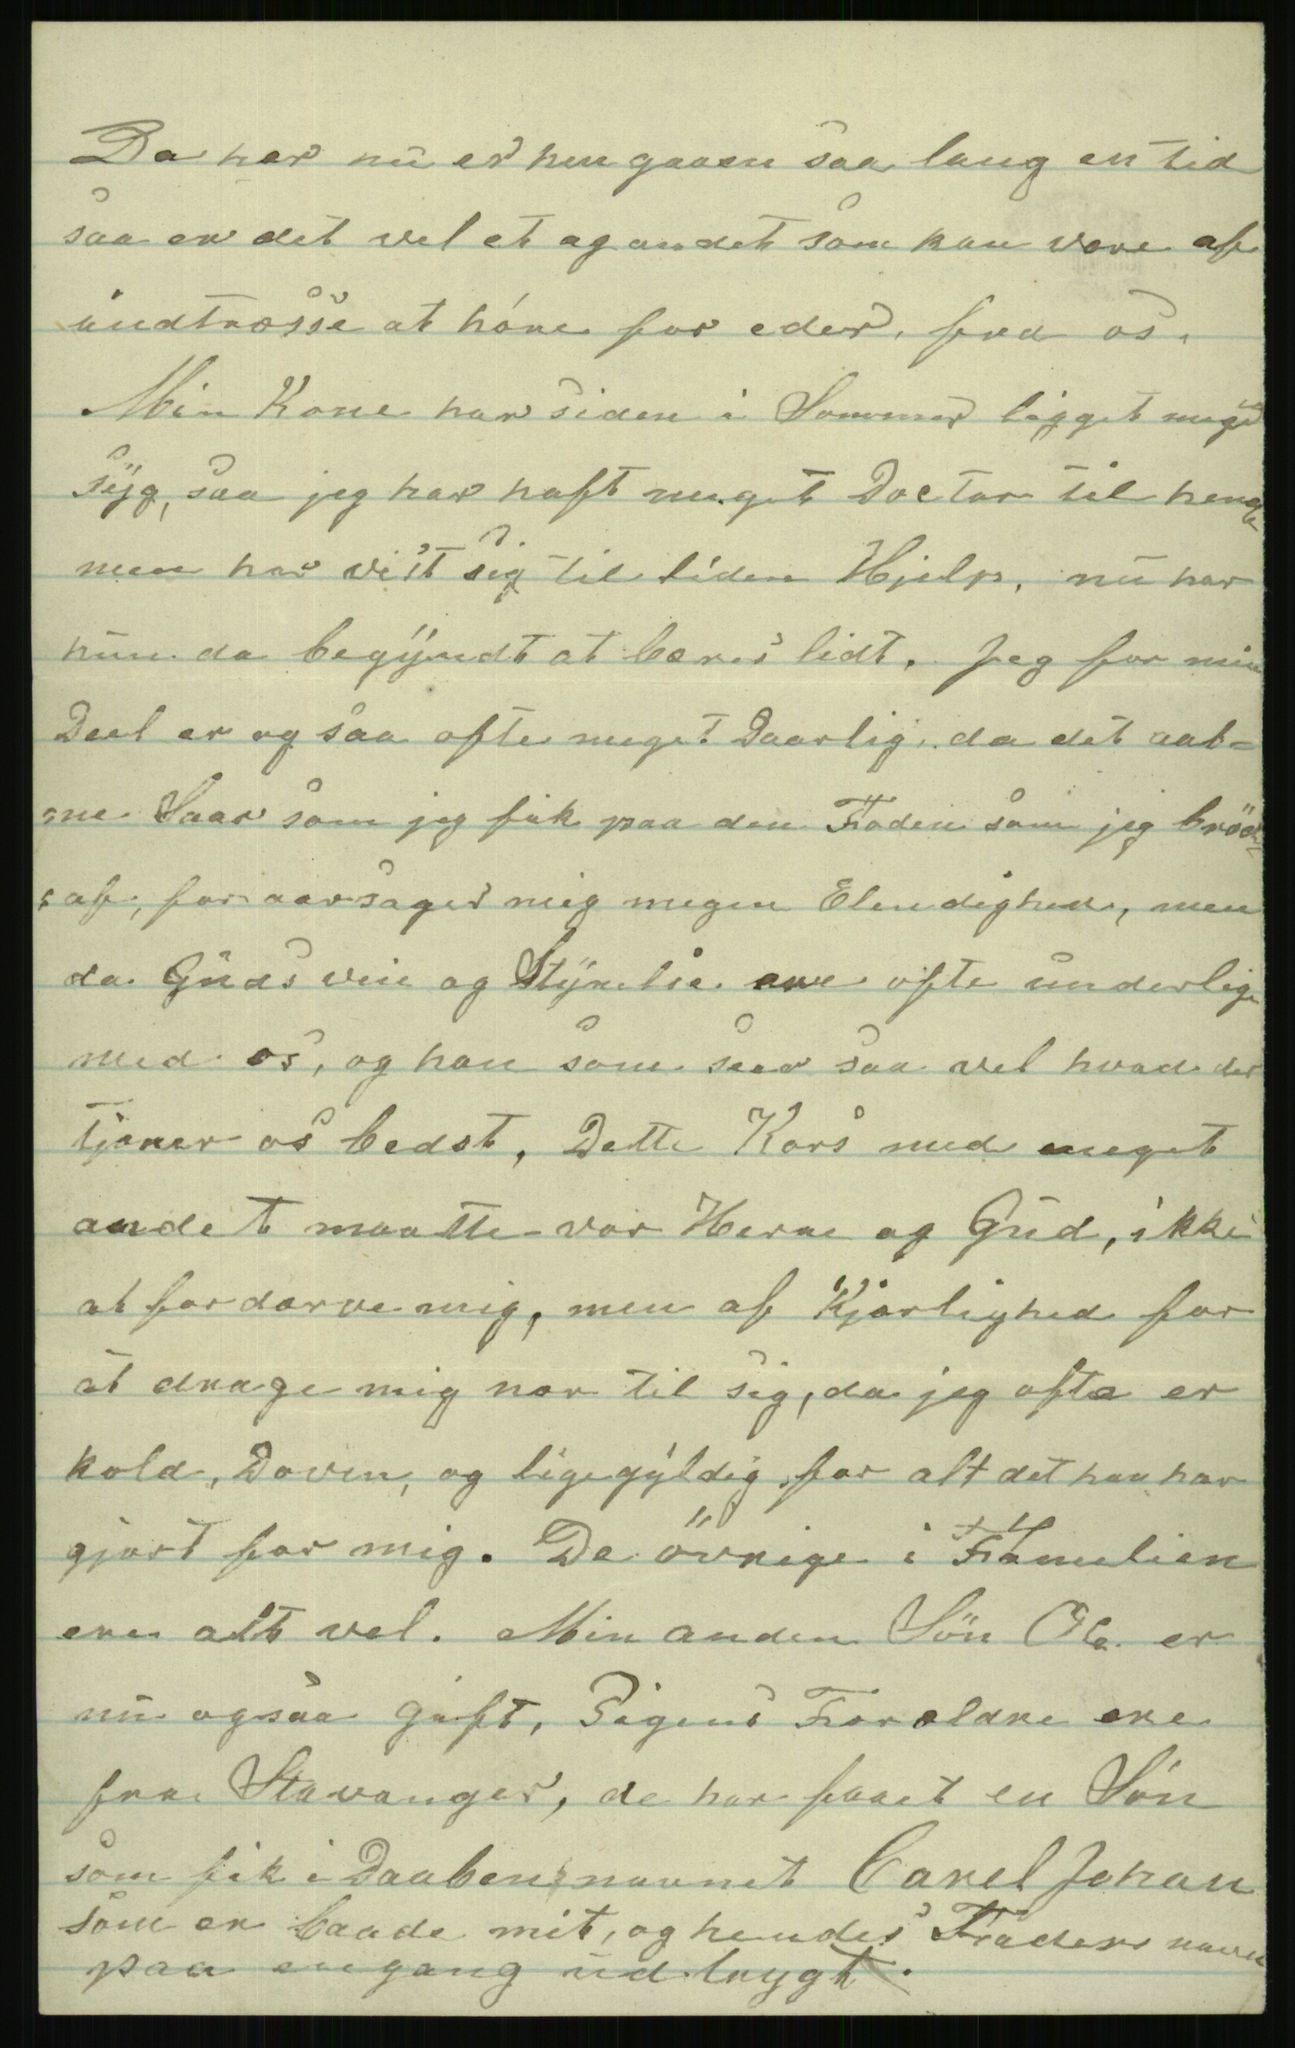 Da her nu er hengaaen saa lang en tid
saa er det vel et og andet som kan være af
indtræsse at höre for eder, fra os.
Min Kone har siden i Sommer ligget meget
syg, saa jeg har haft meget Doctor til hende
men har vist sig til liden Hjelp, nu har
hun da begyndt at bæres lidt. Jeg for min
Deel er og saa ofte meget Daarlig, da det aab-
ne Saar som jeg fik paa den Foden som jeg bröd
af, foraarsager mig megen Elendighed, men
da Guds veie og Styrelse ere ofte underlige
med os, og han som seer saa vel hvad der
tjæner os bedst, Dette Kors med meget
andet maatte vor Herre og Gud, ikke
at fordærve mig, men af Kjærlighed for
at drage mig nær til sig, da jeg ofte er
kold, Doven, og ligegyldig for alt det han har
gjort for mig. De övrige i Familien
ere alt vel. Min anden Sön Ole er
nu ogsaa gift, Pigens Forældre ere
fra Stavanger, de har faaet en Sön
som fik i Daaben navnet Carel Johan
som er baade mit, og hendes Faders navn
paa engang udtrygt.